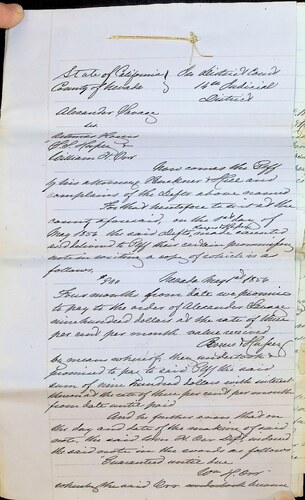 State of California } In District Court
County of Nevada } 14th Judicial
District
Alexander
vs
William H. Orr
Now comes the Plff
by his attorneys & and
complains of the Defts above named
For that heretofore to wit at the
county aforesaid, on the 1st day of
May 1856 the said Defts made executed
and delivered to Plff their certain promissory
note in writing a copy of which is as
follows.
$900 Nevada May 1st 1856
Four months from date we promise
to pay to the order of Alexander
nine hundred dollars at the rate of three
per cent per month value received
by means whereof they undertook &
promised to pay to said Plff the said
sum of nine hundred dollars with interest
thereon at the rate of three per cent per month
from date until paid
And Plff further avers that on
the day and date of the making of said
note the said Wm H. Orr Deft indorsed
the said note in the words as follows
"Guarantied until due
Wm H. Orr"
whereby the said Orr undertook became